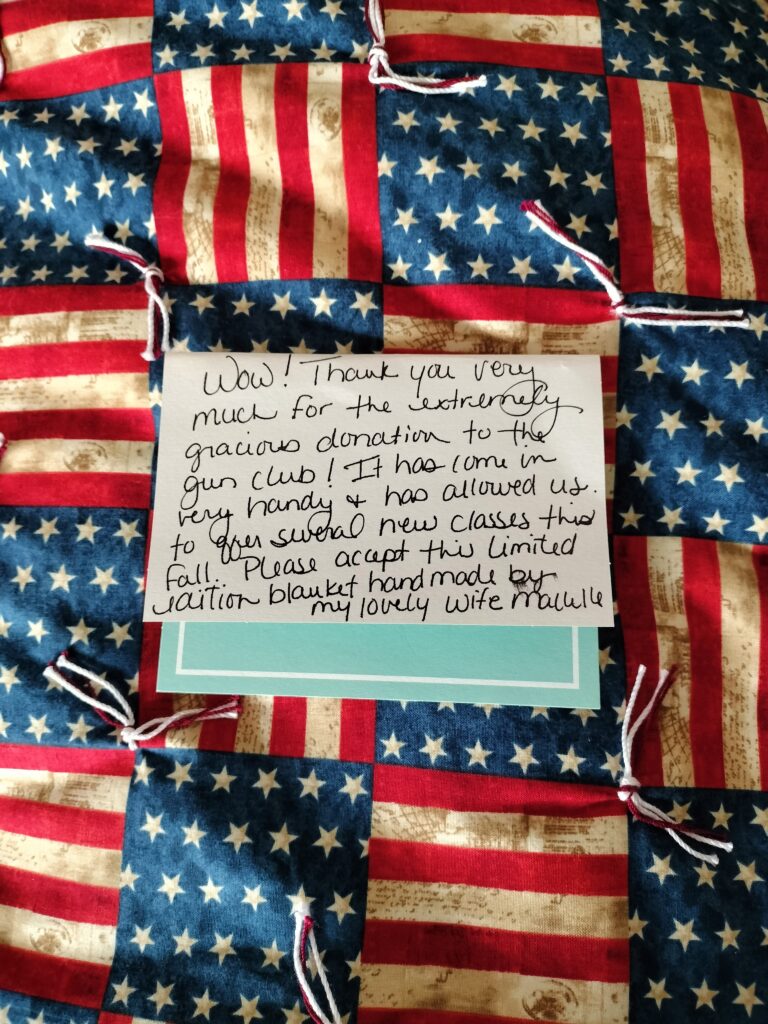 Wow! Thank you very
much for the extremely
gracious donation to the
gun club! It has come in
very handy & has allowed us.
to offer several new classes this
fall.. Please accept this limited
edition blanket handmade by
my lovely wife